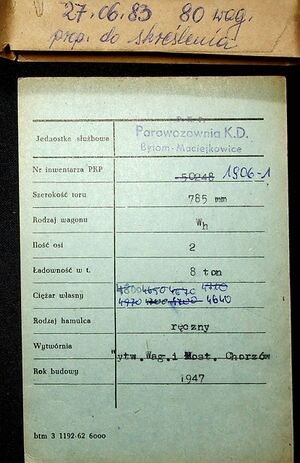 27.06.83 80 wag.
prp. do skreślenia
P. K. P.
Jednostka służbowa Parowozownia K.D.
Bytom-Maciejkowice
Nr inwentarza PKP 50248 1906-1
Szerokość toru 785 mm
Rodzaj wagonu Wh
Ilość osi 2
Ładowność w t. 8 ton
4800 4650 4670 4720
Ciężar własny 4970 4700 4640
Rodzaj hamulca ręczny
Wytwórnia Wytw.Wag.i Most. Chorzów
Rok budowy 1947
btm 3 1192-62 6000